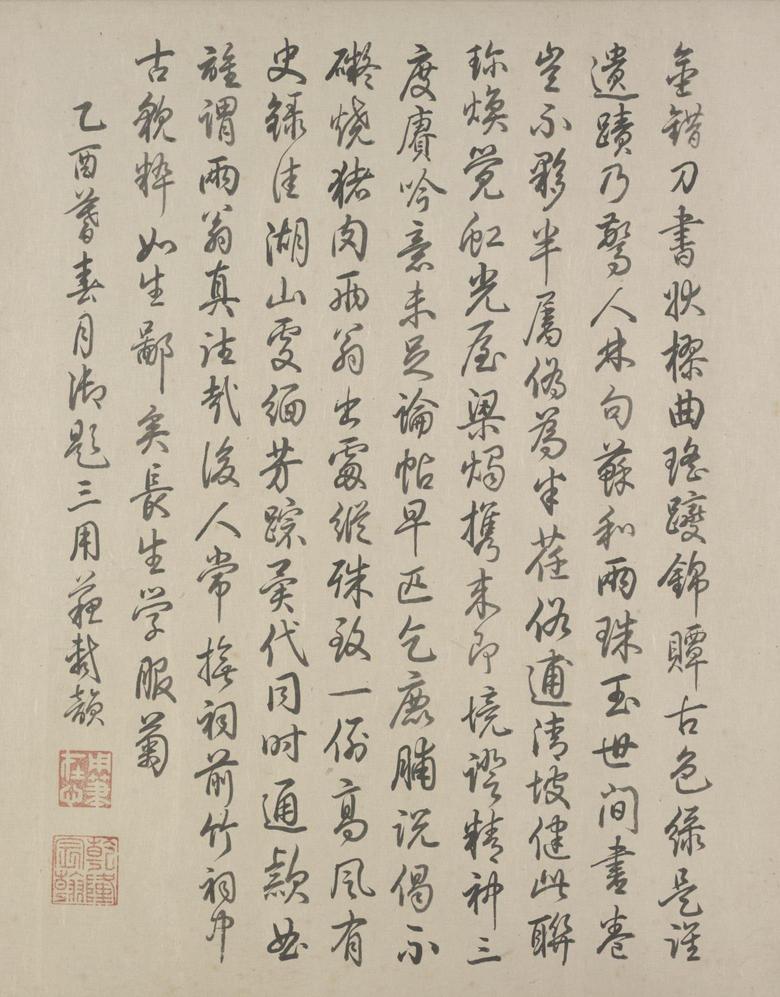 金錯刀書狀樛曲瑤躞錦贉古色綠是誰
遺蹟乃驚人林句蘇和兩珠玉世間書卷
豈不夥半屬偽為半荏俗逋清坡健此聯
珎煥覺虹光屋梁燭攜來即境證精神三
度賡吟意未足論帖早匹乞鹿脯說偈不
礙燒猪肉兩翁出處縱殊致一例高風有
史錄佳湖山處緬芳蹤異代同時通款曲
誰謂兩翁真哉後人常撫祠前竹祠中
古貌粹如生鄙矣長生學服菊
乙酉暮春月御題三用蘇軾韻
用筆在心
乾隆宸翰